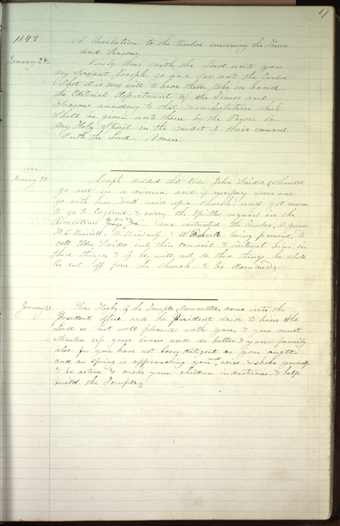 1842
A Revelation to the twelve concerning the Times
and Seasons.
January 28.
Verily thus saith the Lord unto you
my servant Joseph go and say unto the Twelve
That it is my will to have them take in hand
the Editorial Department of the Times and
Seasons according to that manifestation which
Shall be given unto them by the Power of
My Holy Spirit in the midst of their counsel
Saith the Lord. Amen
January 28
Joseph decided that Elder John Snider should
go out on a mission, and if necessary some one
go with him, and raise up a Church, and get means
to go to England, & carry the Epistles required in the
Revelation page 36. and instructed the Twelve, B. Young
H. C. Kimball, W. Richards being present, to
call Elder Snider into their council & instruct him in
these things, & if he will not do these things he shall
be cut off from the Church. & be damned.
January 31
Elias Higbee, of the Temple Committee, came into the
President office and the President said to him the
Lord is not well pleased with you, & you must
Straiten up your loins and do better, & your family
also. for you have not been diligent as you ought
and as spring is approaching you must arise & shake yourself
& be active & make your children industrious, & help
build the Temple.